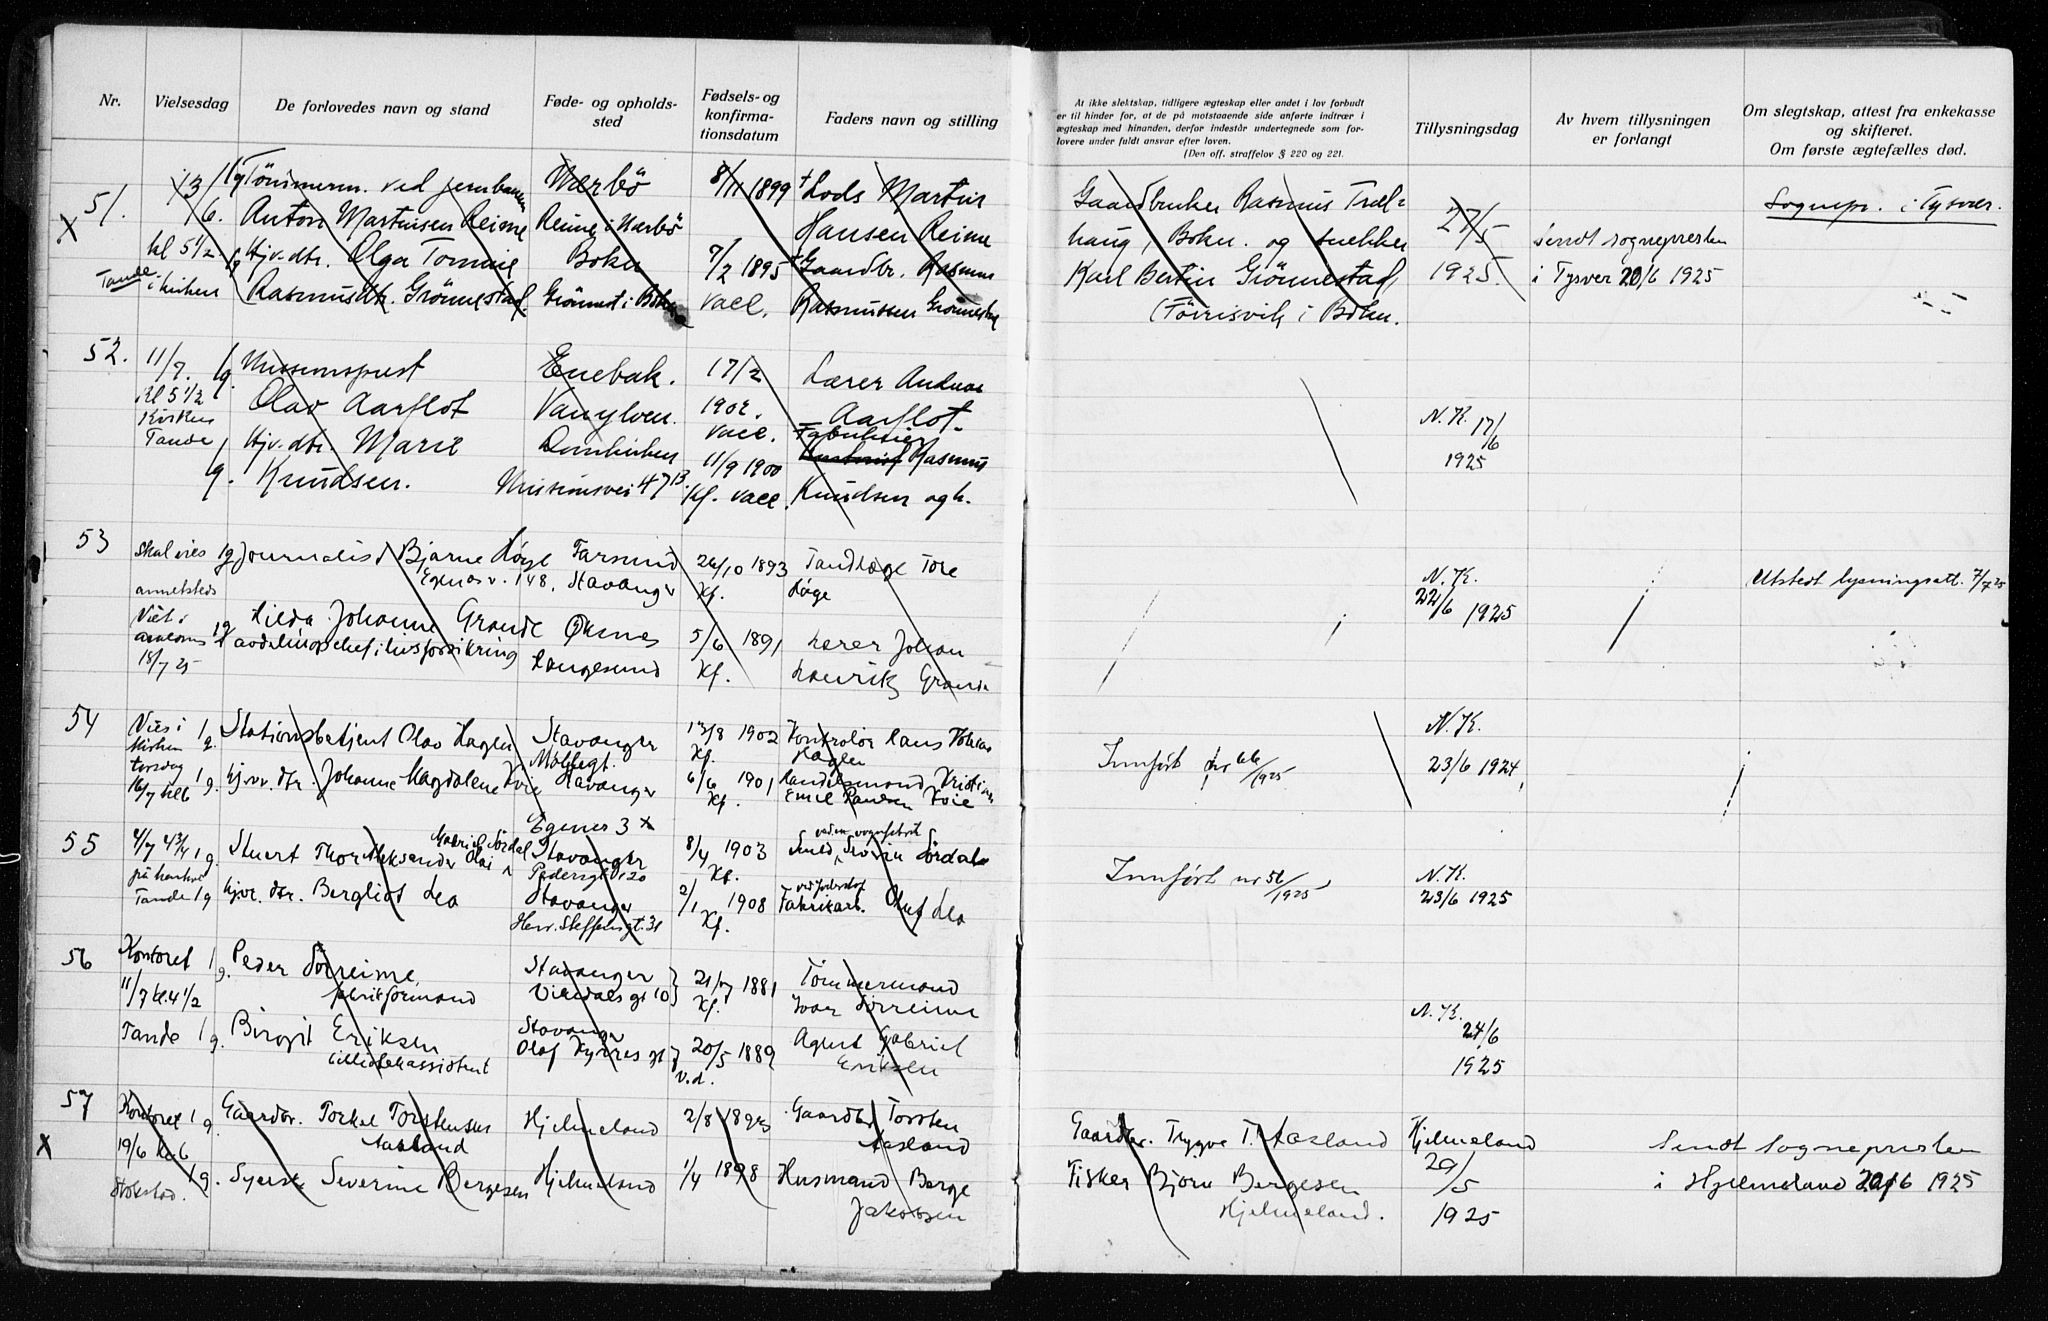 Nr.
Vielsesdag
De forlovedes navn og stand
Føde- og opholds-
sted
Fødsels- og
konfirma-
tionsdatum
Faders navn og stilling
At ikke slektskap, tidligere ægteskap eller andet i lov forbudt
er til hinder for, at de på motstaaende side anførte indtrær i
ægteskap med hinanden, derfor indestår undertegnede som for-
lovere under fuldt ansvar efter loven.
(Den off. straffelov § 220 og 221.
Tillysningsdag
Av hvem tillysningen
er forlangt
Om slegtskap, attest fra enkekasse
og skifteret.
Om første ægtefælles død.
51.
X
13/6.
kl 5 1/2.
Tande
i kirken
1g Tömmerm. ved jernbanen
Anton Martinsen Reime
1g Hjv. dtr. Olga Tomine
Rasmusdtr. Grönnestad.
Værbö
Reime i Værbö
Bokn
Grönnest i Bokn
8/11 1899
7/2 1895
vacc.
+ Lods Martin
Hansen Reime
+ Gaardbr. Rasmus
Rasmussen Grönnestad
Gaardbruker Rasmus Træl-
haug, Bokn. og snekker
Karl Bertin Grönnestad,
(Föirisvik i Bokn.
27/5
1925.
Sendt sognepresten
i Tysver 20/6 1925
Sognepr. i Tysvær.
52.
11/7.
Kl 5 1/2
Kirken
Tande
1g. Missionsprest
Olav Aarflot
1g. Hjv. dtr. Marie
Knudsen.
Enebak.
Vanylven.
Domkirken
Missionsvei 47 B.
17/2
1902.
vacc.
11/9 1900
Kf. vacc.
Lærer Andreas
Aarflot.
Fabrikeier
Rasmus
Knudsen og h.
N. K. 17/6
1925
53
Skal vies
annetsteds
Viet i
18/7 25
1g Journalist Bjarne Løge Farsund
Egenesv. 148, Stavanger
1g. Lilda Johanne Grande Øksnes
avdelingschef i livsforsikring Langesund
26/10 1893
Kf.
5/6 1891
Kf.
Tandlæge Tore
Løge
Lærer Johan
Lauritz Grande
N. K.
22/6 1925
Utstedt lysningsatt. 7/7 25
54
Vies i
kirken
torsdag
16/7 kl 6
1g. Stationsbetjent Olav Hagler
1g. hj.vr. dtr. Johanne Magdalene Kvie
Stavanger
Møllegt.
Stavanger
Egenes 3
13/8 1902
Kf.
6/6 1901
Kf.
Kontrolør Hans Tobias
Hagler
Handelsmand Kristian
Emil Paulsen Kvie
Innført nr 66/1925
N. K.
23/6 1924
55
4/7 4 3/4
Tande
1g. Stuert Thor Aleksander Olai Gabriel Sørdal
1g hjvr. dtr. Bergliot Lea
Stavanger
Pedersgt. 120
Stavanger
Henr. Steffensgt. 31
8/4 1903
Kf.
2/1 1908
Kf.
Smed Severin Sørdal
Fabrikarb. Oluf Lea
Innført nr 56/1925
N. K.
23/6 1925
56
Kontoret
11/7 kl. 4 1/2
Tande
1g. Peder Sørreime,
fabrikformand
1g. Birgit Eriksen
Stavanger
Vikedalsgt 10
Stavanger
Olaf Kyrres gt
21/7 1881
Kf.
20/5 1889
v.d.
Tømmermand
Ivar Sørreime
Agent Gabriel
Eriksen
N. K.
24/6
1925
57
X
Kontoret
19/6 kl 6
Stokstad.
1g. Gaardbr. Torkel Torstensen
Aasland
1g. Syerske Severine Bergesen
Hjelmeland
Hjelmeland
2/8
1/4 1898
Gaardbr. Torsten
Aasland
Husmand Berge
Jakobsen
Gaardbr. Trygve T. Aasland
Fisker Bjørn Bergesen
Hjelmeland.
Hjelmeland
29/5
1925
Sendt sognepresten
i Hjelmeland 20/6 1925